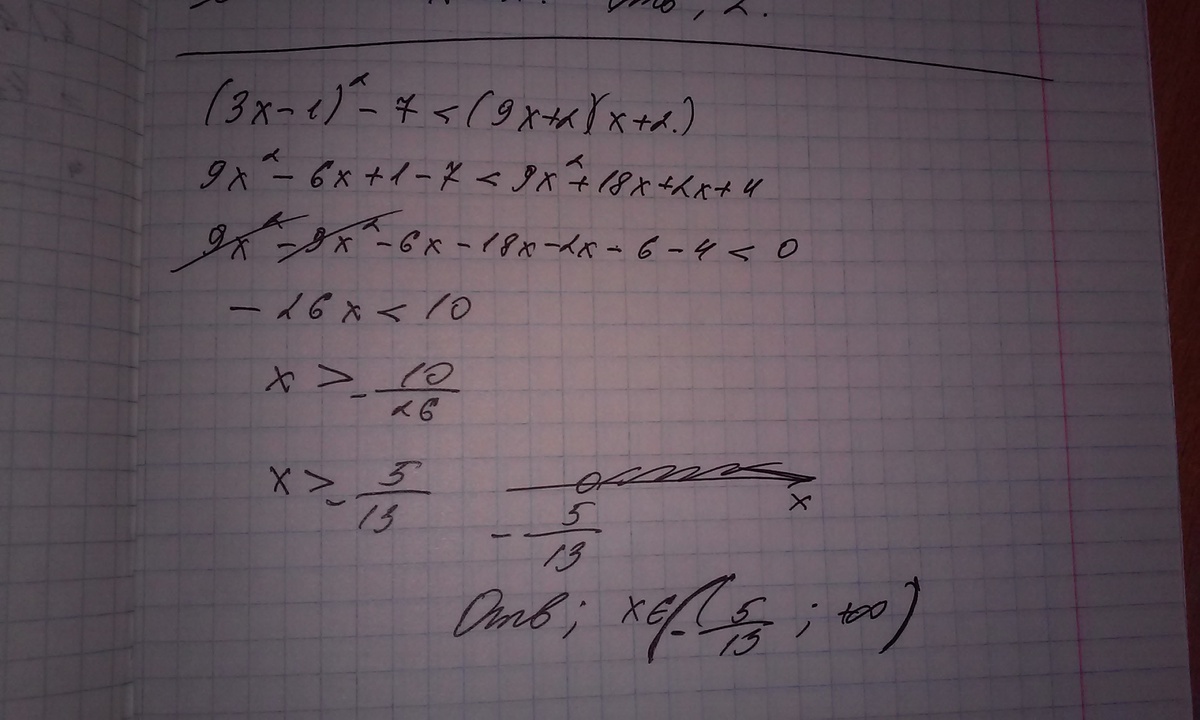 Отв, 2.
(3x-1)² - 7 < (9x+2)(x+2)
9x² - 6x + 1 - 7 < 9x² + 18x + 2x + 4
9x² - 9x² - 6x - 18x - 2x - 6 - 4 < 0
- 26x < 10
x > - 10/26
x > - 5/13
x
- 5/13
Отв; x ∈ (- 5/13 ; +∞)